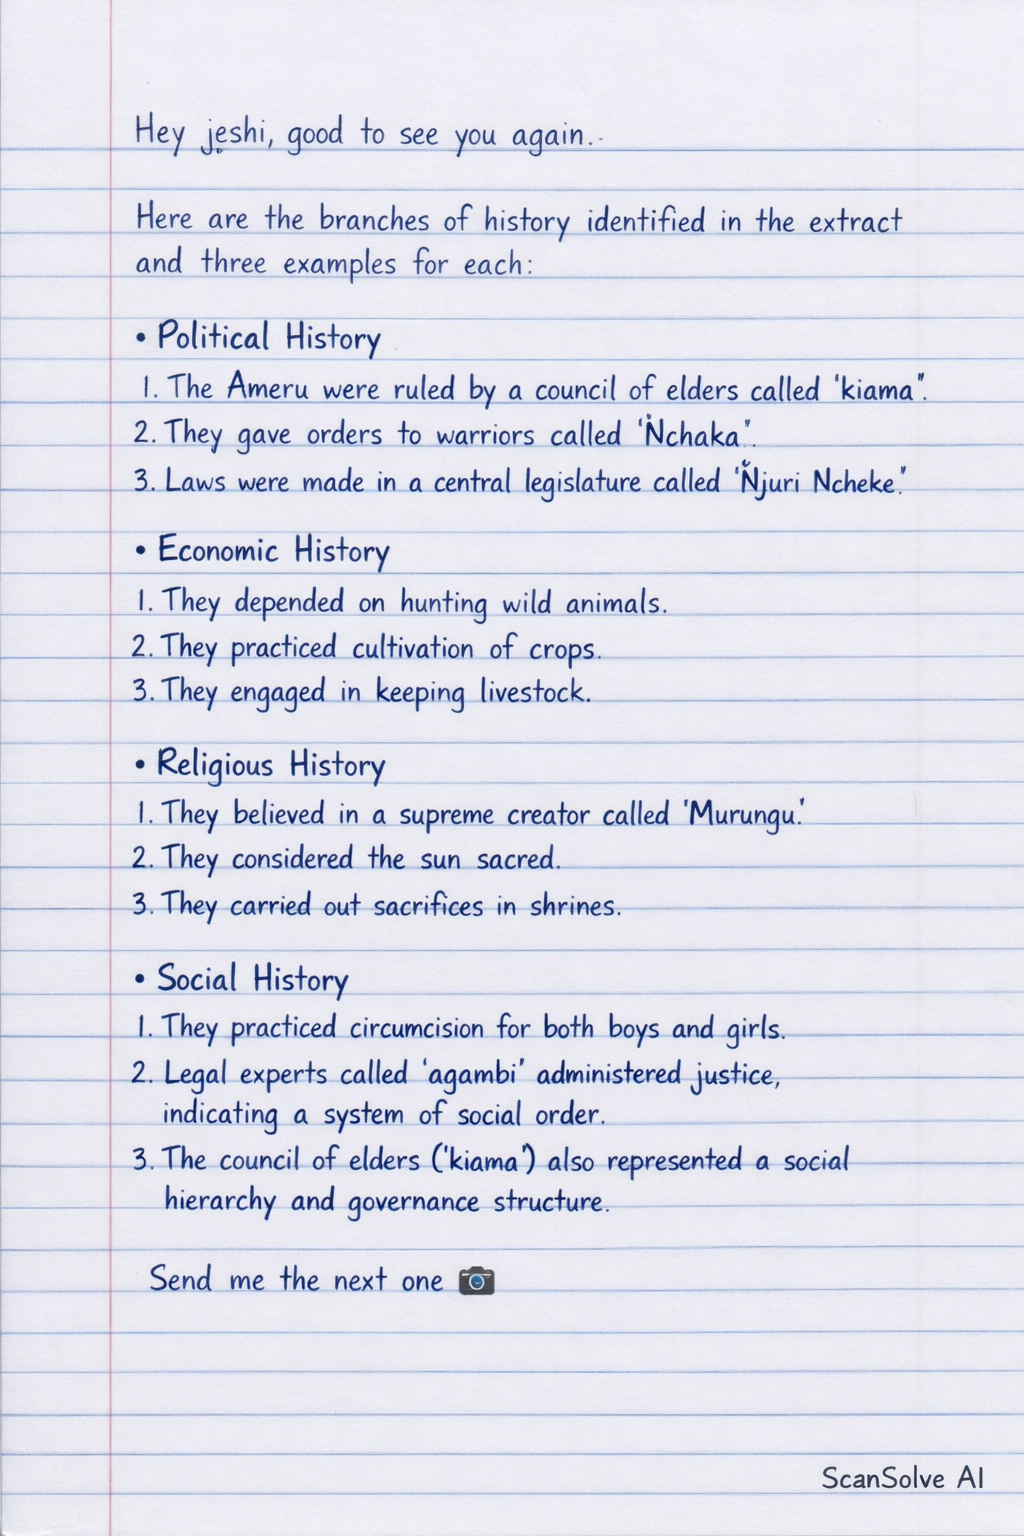 Hey jeshi, good to see you again.
Here are the branches of history identified in the extract
and three examples for each:
• Political History
1. The Ameru were ruled by a council of elders called 'kiama".
2. They gave orders to warriors called 'Ṅchaka".
3. Laws were made in a central legislature called 'Ňjuri Ncheke.'
• Economic History
1. They depended on hunting wild animals.
2. They practiced cultivation of crops.
3. They engaged in keeping livestock.
• Religious History
1. They believed in a supreme creator called 'Murungu.'
2. They considered the sun sacred.
3. They carried out sacrifices in shrines.
• Social History
1. They practiced circumcision for both boys and girls.
2. Legal experts called 'agambi' administered justice,
indicating a system of social order.
3. The council of elders ('kiama') also represented a social
hierarchy and governance structure.
Send me the next one 📷
ScanSolve AI